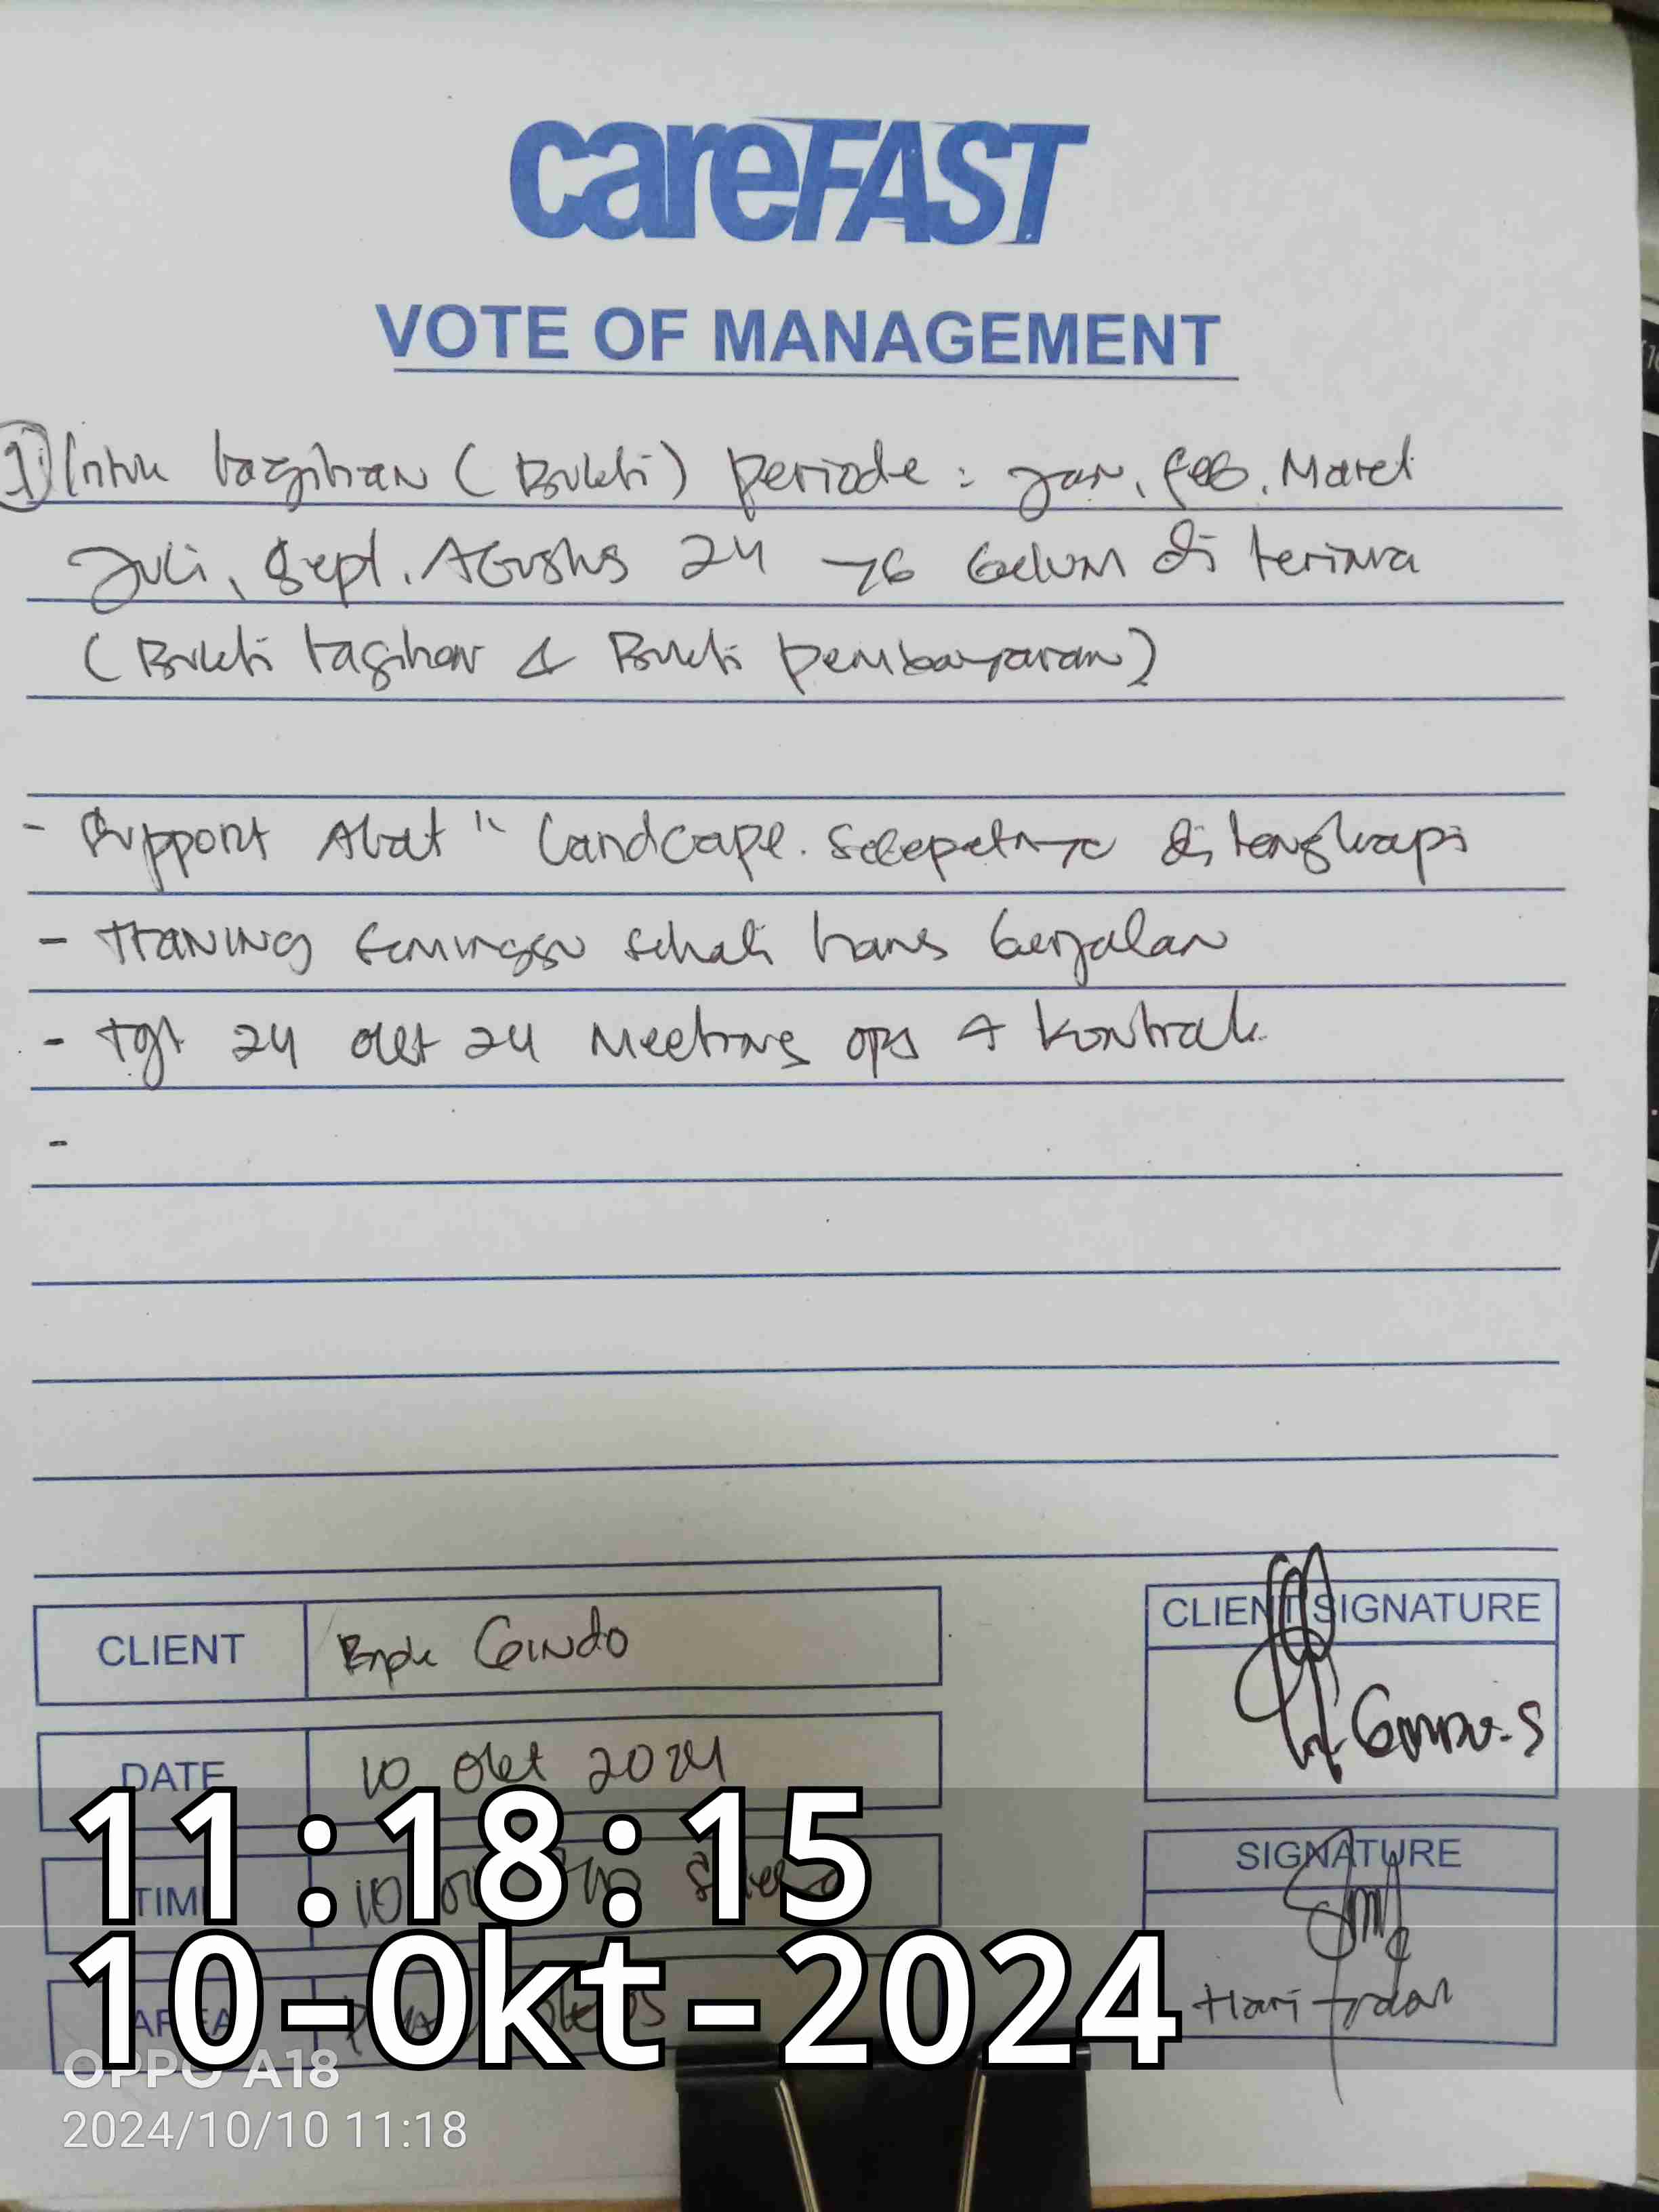 careFAST
VOTE OF MANAGEMENT
1) Untuk tagihan (Bukti) periode : Jan, Feb, Maret
Juli, Sept, Agustus 24 yg belum di terima
(Bukti tagihan & Bukti pembayaran)
- Support Alat" Landcape. Secepatnya di lengkapi
- Traning seminggu sekali harus berjalan
- Tgl 24 Okt 24 Meeting ops & Kontrak
-
CLIENT Bapk Gindo
CLIENT SIGNATURE
DATE 10 Okt 2024
TIME 10
SIGNATURE
AREA
Hari
11:18:15
10-Okt-2024
OPPO A18
2024/10/10 11:18